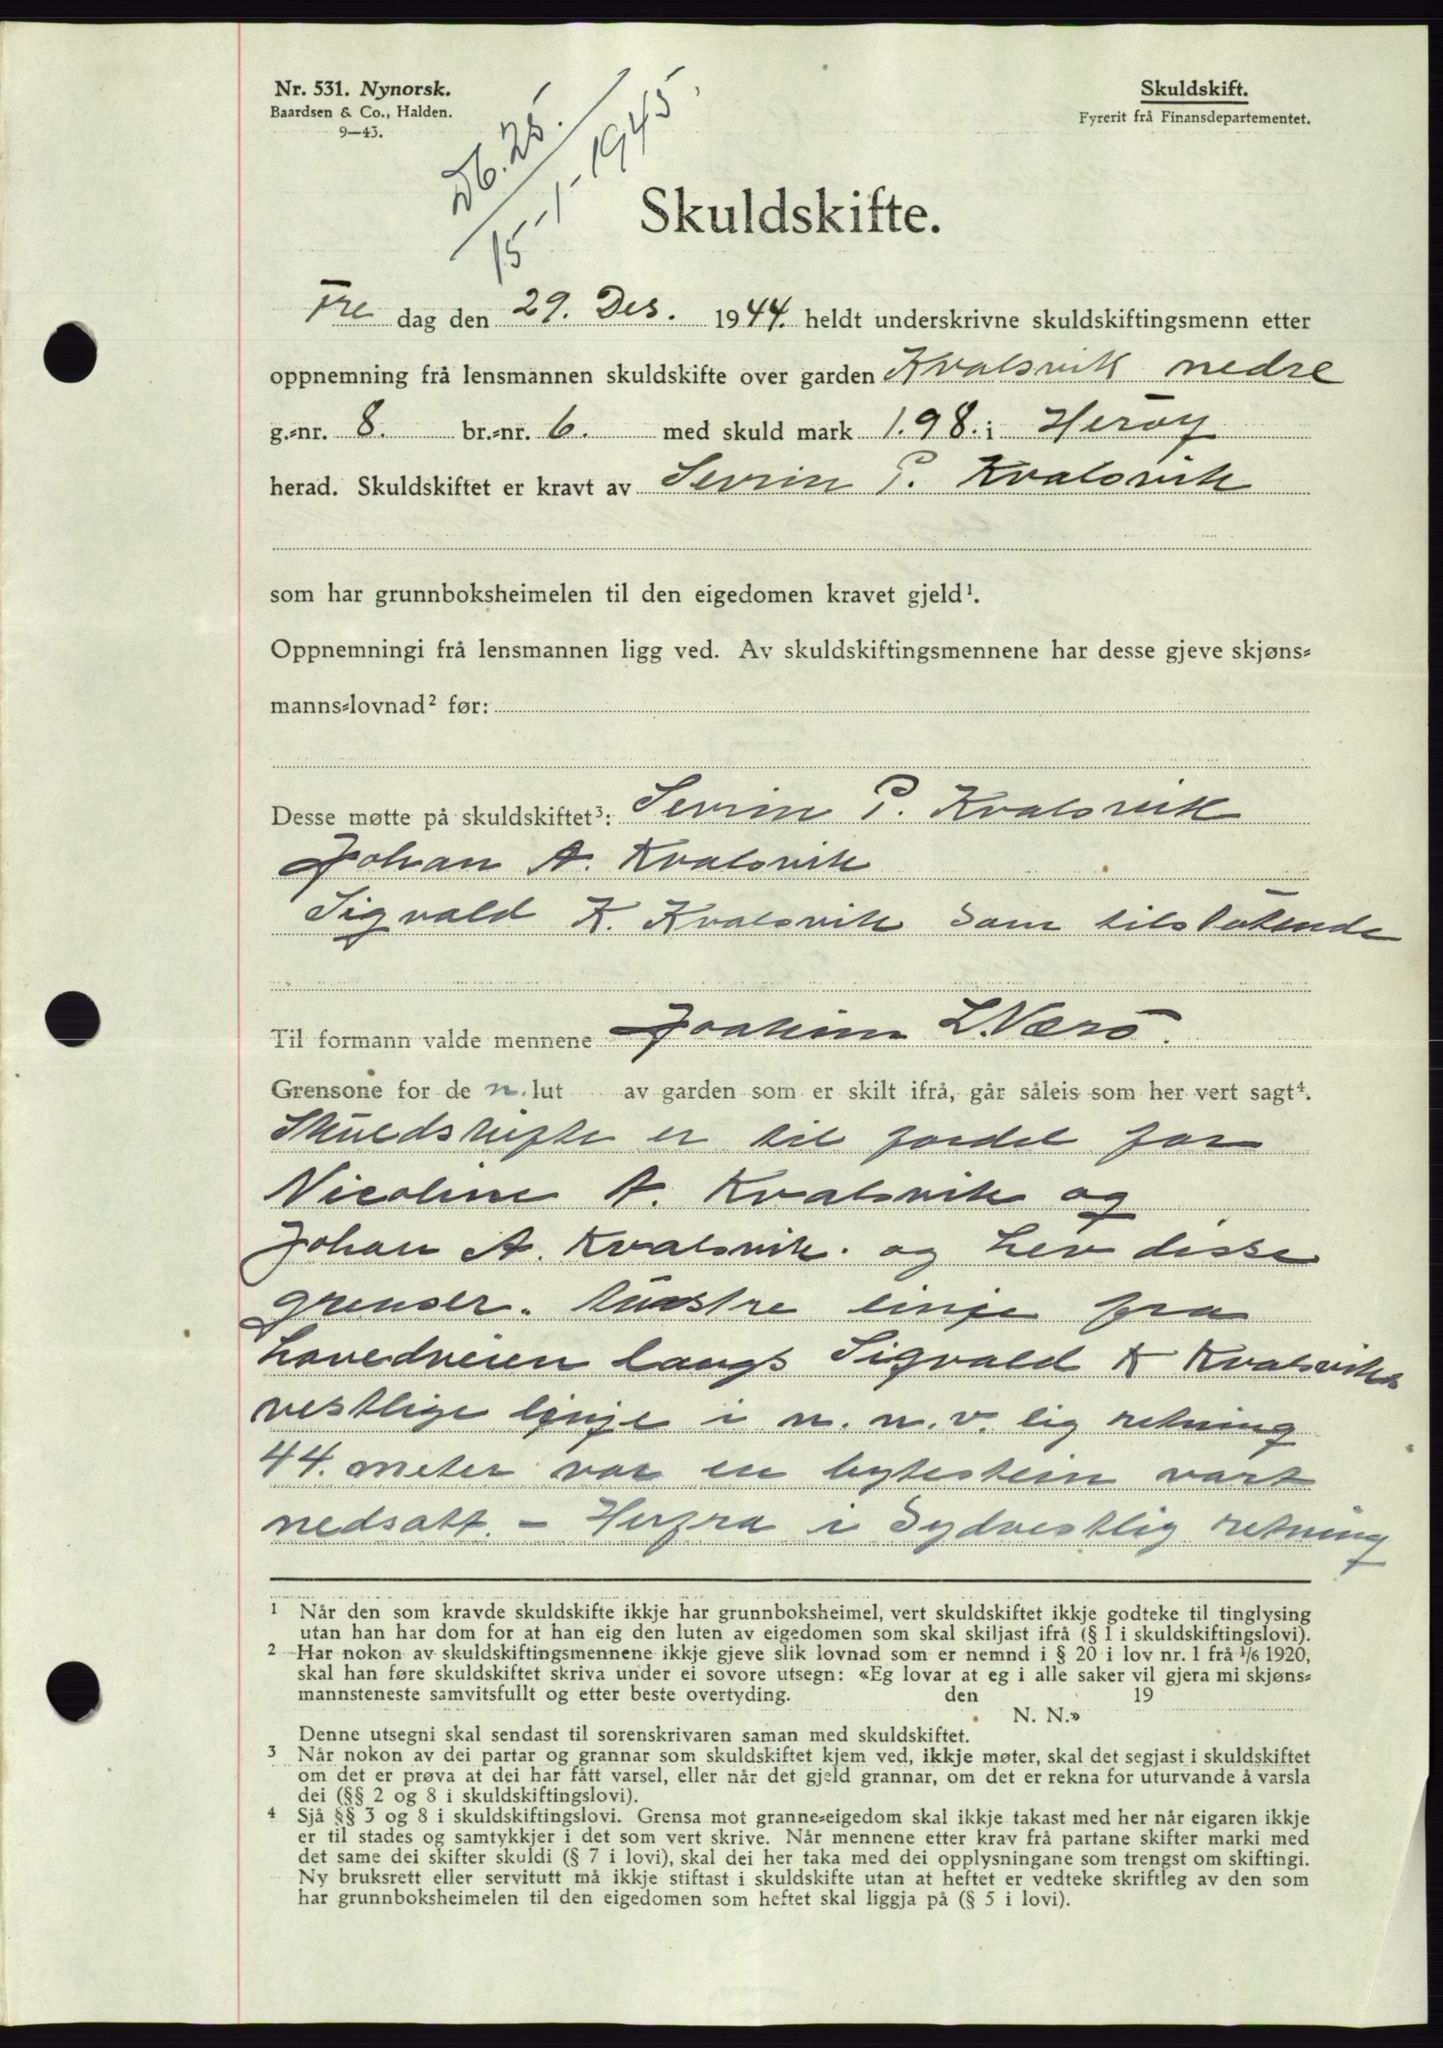 Nr. 531. Nynorsk.
Baardsen & Co., Halden.
9—43.
Db. 25.
15-1-1945.
Skuldskift.
Fyrerit frå Finansdepartementet.
Skuldskifte.
Fre dag den 29. Des. 1944. heldt underskrivne skuldskiftingsmenn etter
oppnemning frå lensmannen skuldskifte over garden Kvalsvik nedre
g.-nr. 8. br.-nr. 6. med skuld mark 1.98. i Herøy
herad. Skuldskiftet er kravt av Sevrin P. Kvalsvik
som har grunnboksheimelen til den eigedomen kravet gjeld¹.
Oppnemningi frå lensmannen ligg ved. Av skuldskiftingsmennene har desse gjeve skjøns-
manns-lovnad² før:
Desse møtte på skuldskiftet³: Sevrin P. Kvalsvik
Johan A. Kvalsvik
Sigvald K. Kvalsvik som tilstøtende
Til formann valde mennene Joakim L. Nærö.
Grensone for de n. lut av garden som er skilt ifrå, går såleis som her vert sagt⁴.
Skuldskifte er til fordel for
Nicoline A. Kvalsvik og
Johan A. Kvalsvik. og hev disse
grenser. linje fra
hovedveien langs Sigvald K Kvalsviks
vestlige linje i n. n. v. lig retning
44. meter var en bytestein vart
nedsatt. – Herfra i Sydvestlig retning
1 Når den som kravde skuldskifte ikkje har grunnboksheimel, vert skuldskiftet ikkje godteke til tinglysing
utan han har dom for at han eig den luten av eigedomen som skal skiljast ifrå (§ 1 i skuldskiftingslovi).
2 Har nokon av skuldskiftingsmennene ikkje gjeve slik lovnad som er nemnd i § 20 i lov nr. 1 frå 1/6 1920,
skal han føre skuldskiftet skriva under ei sovore utsegn: «Eg lovar at eg i alle saker vil gjera mi skjøns-
mannsteneste samvitsfullt og etter beste overtyding. den 19
N. N.»
Denne utsegni skal sendast til sorenskrivaren saman med skuldskiftet.
3 Når nokon av dei partar og grannar som skuldskiftet kjem ved, ikkje møter, skal det segjast i skuldskiftet
om det er prøva at dei har fått varsel, eller når det gjeld grannar, om det er rekna for uturvande å varsla
dei (§§ 2 og 8 i skuldskiftingslovi).
4 Sjå §§ 3 og 8 i skuldskiftingslovi. Grensa mot granne-eigedom skal ikkje takast med her når eigaren ikkje
er til stades og samtykkjer i det som vert skrive. Når mennene etter krav frå partane skifter marki med
det same dei skifter skuldi (§ 7 i lovi), skal dei her taka med dei opplysningane som trengst om skiftingi.
Ny bruksrett eller servitutt må ikkje stiftast i skuldskifte utan at heftet er vedteke skriftleg av den som
har grunnboksheimelen til den eigedomen som heftet skal liggja på (§ 5 i lovi).